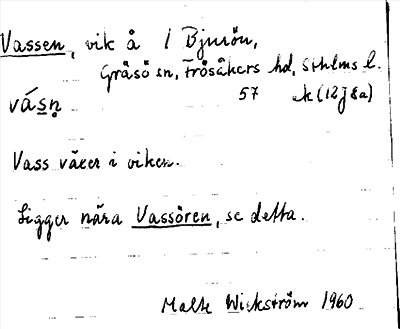 Vassen, vik å 1 Bjurön,
Gräsö sn, Frösåkers hd, Sthlms l.
vásn̥ 57 ek (12J8a)
Vass växer i viken.
Ligger nära Vassören, se detta.
Malte Wickström 1960